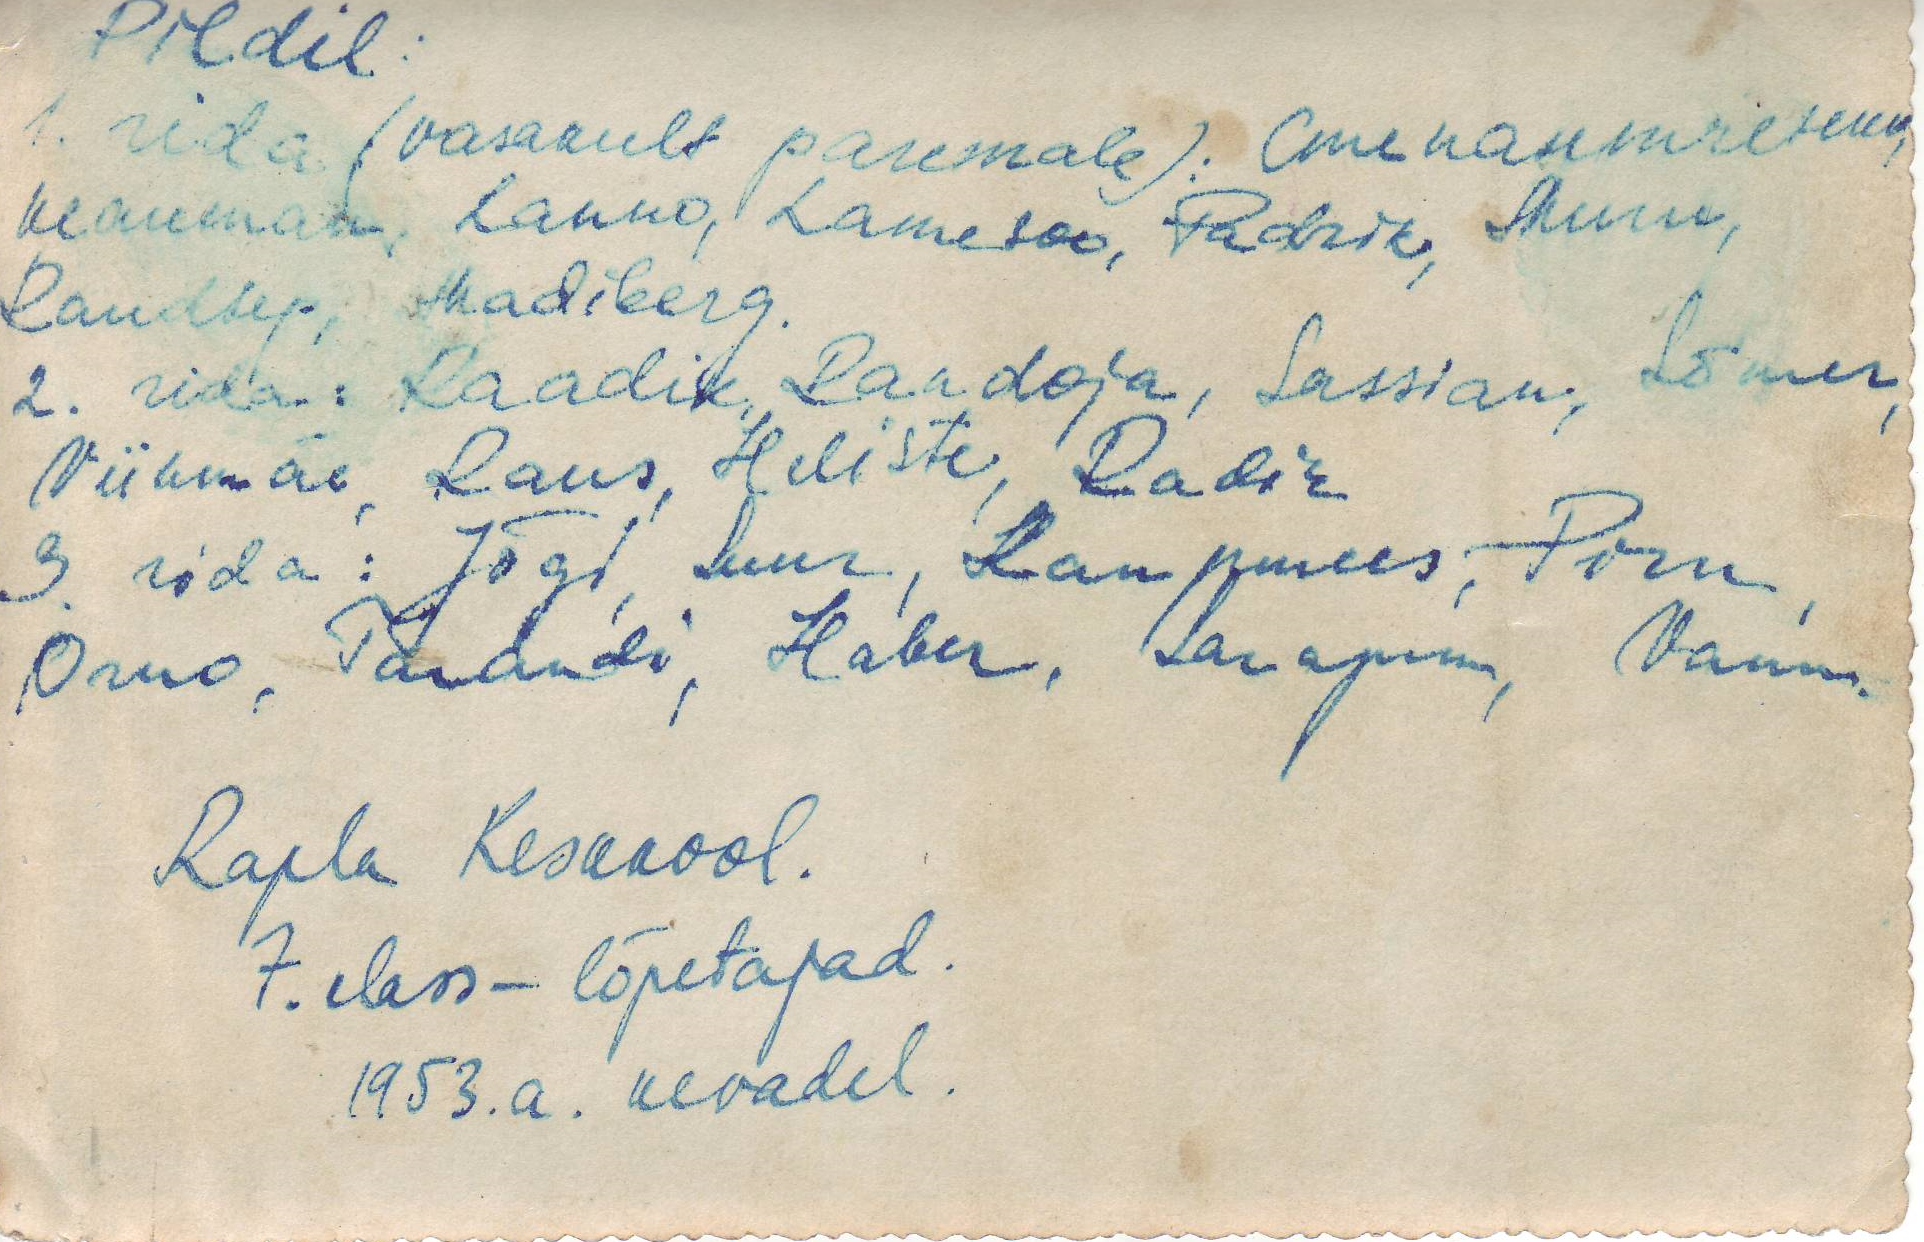 Pildil:
1. rida (vasakult paremale):
Lanno, Lamesoo, Padrik,
Randsep, Madiberg.
2. rida: Raadik, Randoja, Sassian, Lõmer,
Viinmäe, Raus, Heliste, Radik
3. rida: Jõgi, Suur, Kaupmees, Pärn,
Orno, Tarandi, Haber, Sarapuu,
Rapla Keskkool.
7. klass – lõpetajad.
1953. a. kevadel.